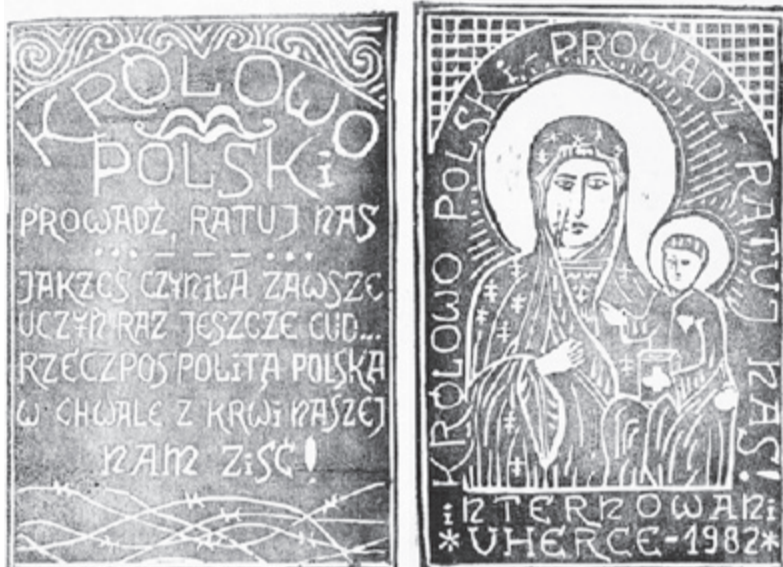 KRÓLOWO
POLSKi
PROWADŹ, RATUJ NAS
... – – – ...
JAKŻEŚ CZYNiŁA ZAWSZE
UCZYŃ RAZ JESZCZE CUD...
RZECZPOSPOLiTĄ POLSKĄ
W CHWALE Z KRWi NASZEJ
NAM ZiŚĆ!
KRÓLOWO POLSKi - PROWADŹ - RATUJ NAS!
iNTERNOWANi
*UHERCE-1982*